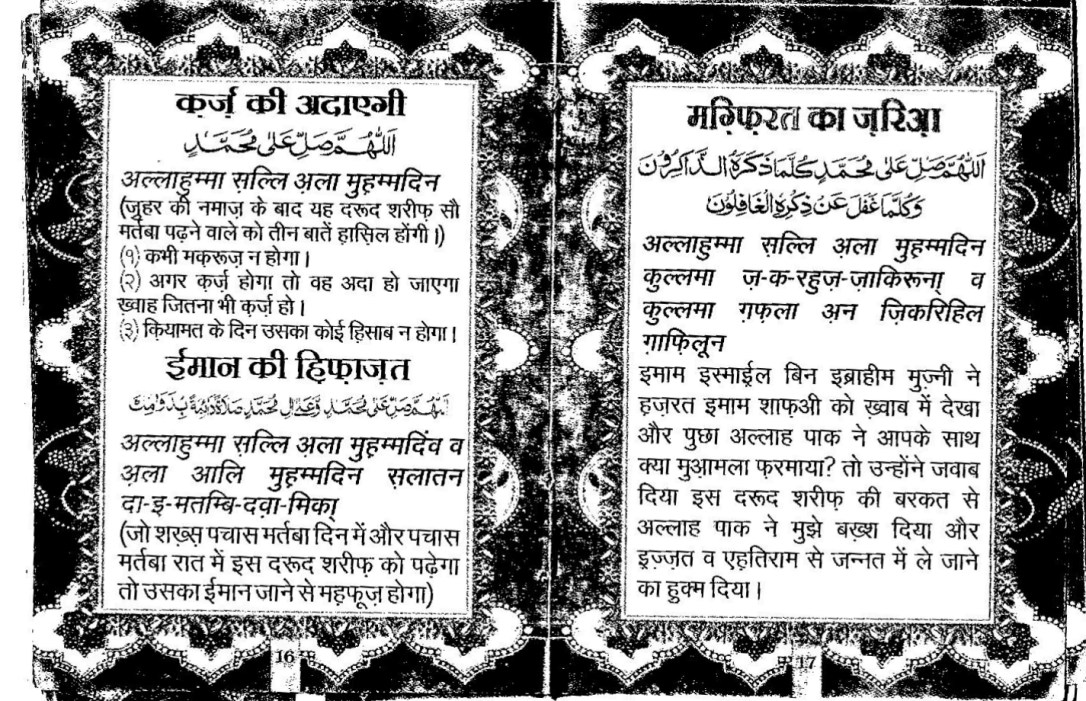 क़र्ज़ की अदाएगी
اَللّٰهُمَّ صَلِّ عَلٰى مُحَمَّدٍ
अल्लाहुम्मा स़ल्लि अ़ला मुह़म्मदिन
(ज़ुहर की नमाज़ के बाद यह दरूद शरीफ़ सौ
मर्तबा पढ़ने वाले को तीन बातें ह़ास़िल होंगी।)
(१) कभी मक़रूज़ न होगा।
(२) अगर क़र्ज़ होगा तो वह अदा हो जाएगा
ख़्वाह जितना भी क़र्ज़ हो।
(३) क़ियामत के दिन उसका कोई ह़िसाब न होगा।
ईमान की ह़िफ़ाज़त
اَللّٰهُمَّ صَلِّ عَلٰى مُحَمَّدٍ وَّعَلٰى اٰلِ مُحَمَّدٍ صَلَاةً دَائِمَةً بِدَوَامِكَ
अल्लाहुम्मा स़ल्लि अ़ला मुह़म्मदिंव व
अ़ला आलि मुह़म्मदिन स़लातन
दा-इ-मतम्बि-दवा़-मिका्
(जो शख़्स़ पचास मर्तबा दिन में और पचास
मर्तबा रात में इस दरूद शरीफ़ को पढ़ेगा
तो उसका ईमान जाने से मह़फ़ूज़ होगा)
16
मग़्फ़िरत का ज़रिआ़
اَللّٰهُمَّ صَلِّ عَلٰى مُحَمَّدٍ كُلَّمَا ذَكَرَهُ الذَّاكِرُوْنَ
وَكُلَّمَا غَفَلَ عَنْ ذِكْرِهِ الْغَافِلُوْنَ
अल्लाहुम्मा स़ल्लि अ़ला मुह़म्मदिन
कुल्लमा ज़-क-रहुज़-ज़ाकिरूना् व
कुल्लमा ग़फ़ला अ़न ज़िकरिहिल
ग़ाफ़िलून
इमाम इस्माई़ल बिन इब्राहीम मुज़्नी ने
ह़ज़रत इमाम शाफ़अी को ख़्वाब में देखा
और पुछा अल्लाह पाक ने आपके साथ
क्या मुआ़मला फ़रमाया? तो उन्होंने जवाब
दिया इस दरूद शरीफ़ की बरकत से
अल्लाह पाक ने मुझे बख़्श दिया और
इ़ज़्ज़त व एह़तिराम से जन्नत में ले जाने
का हुक्म दिया।
17